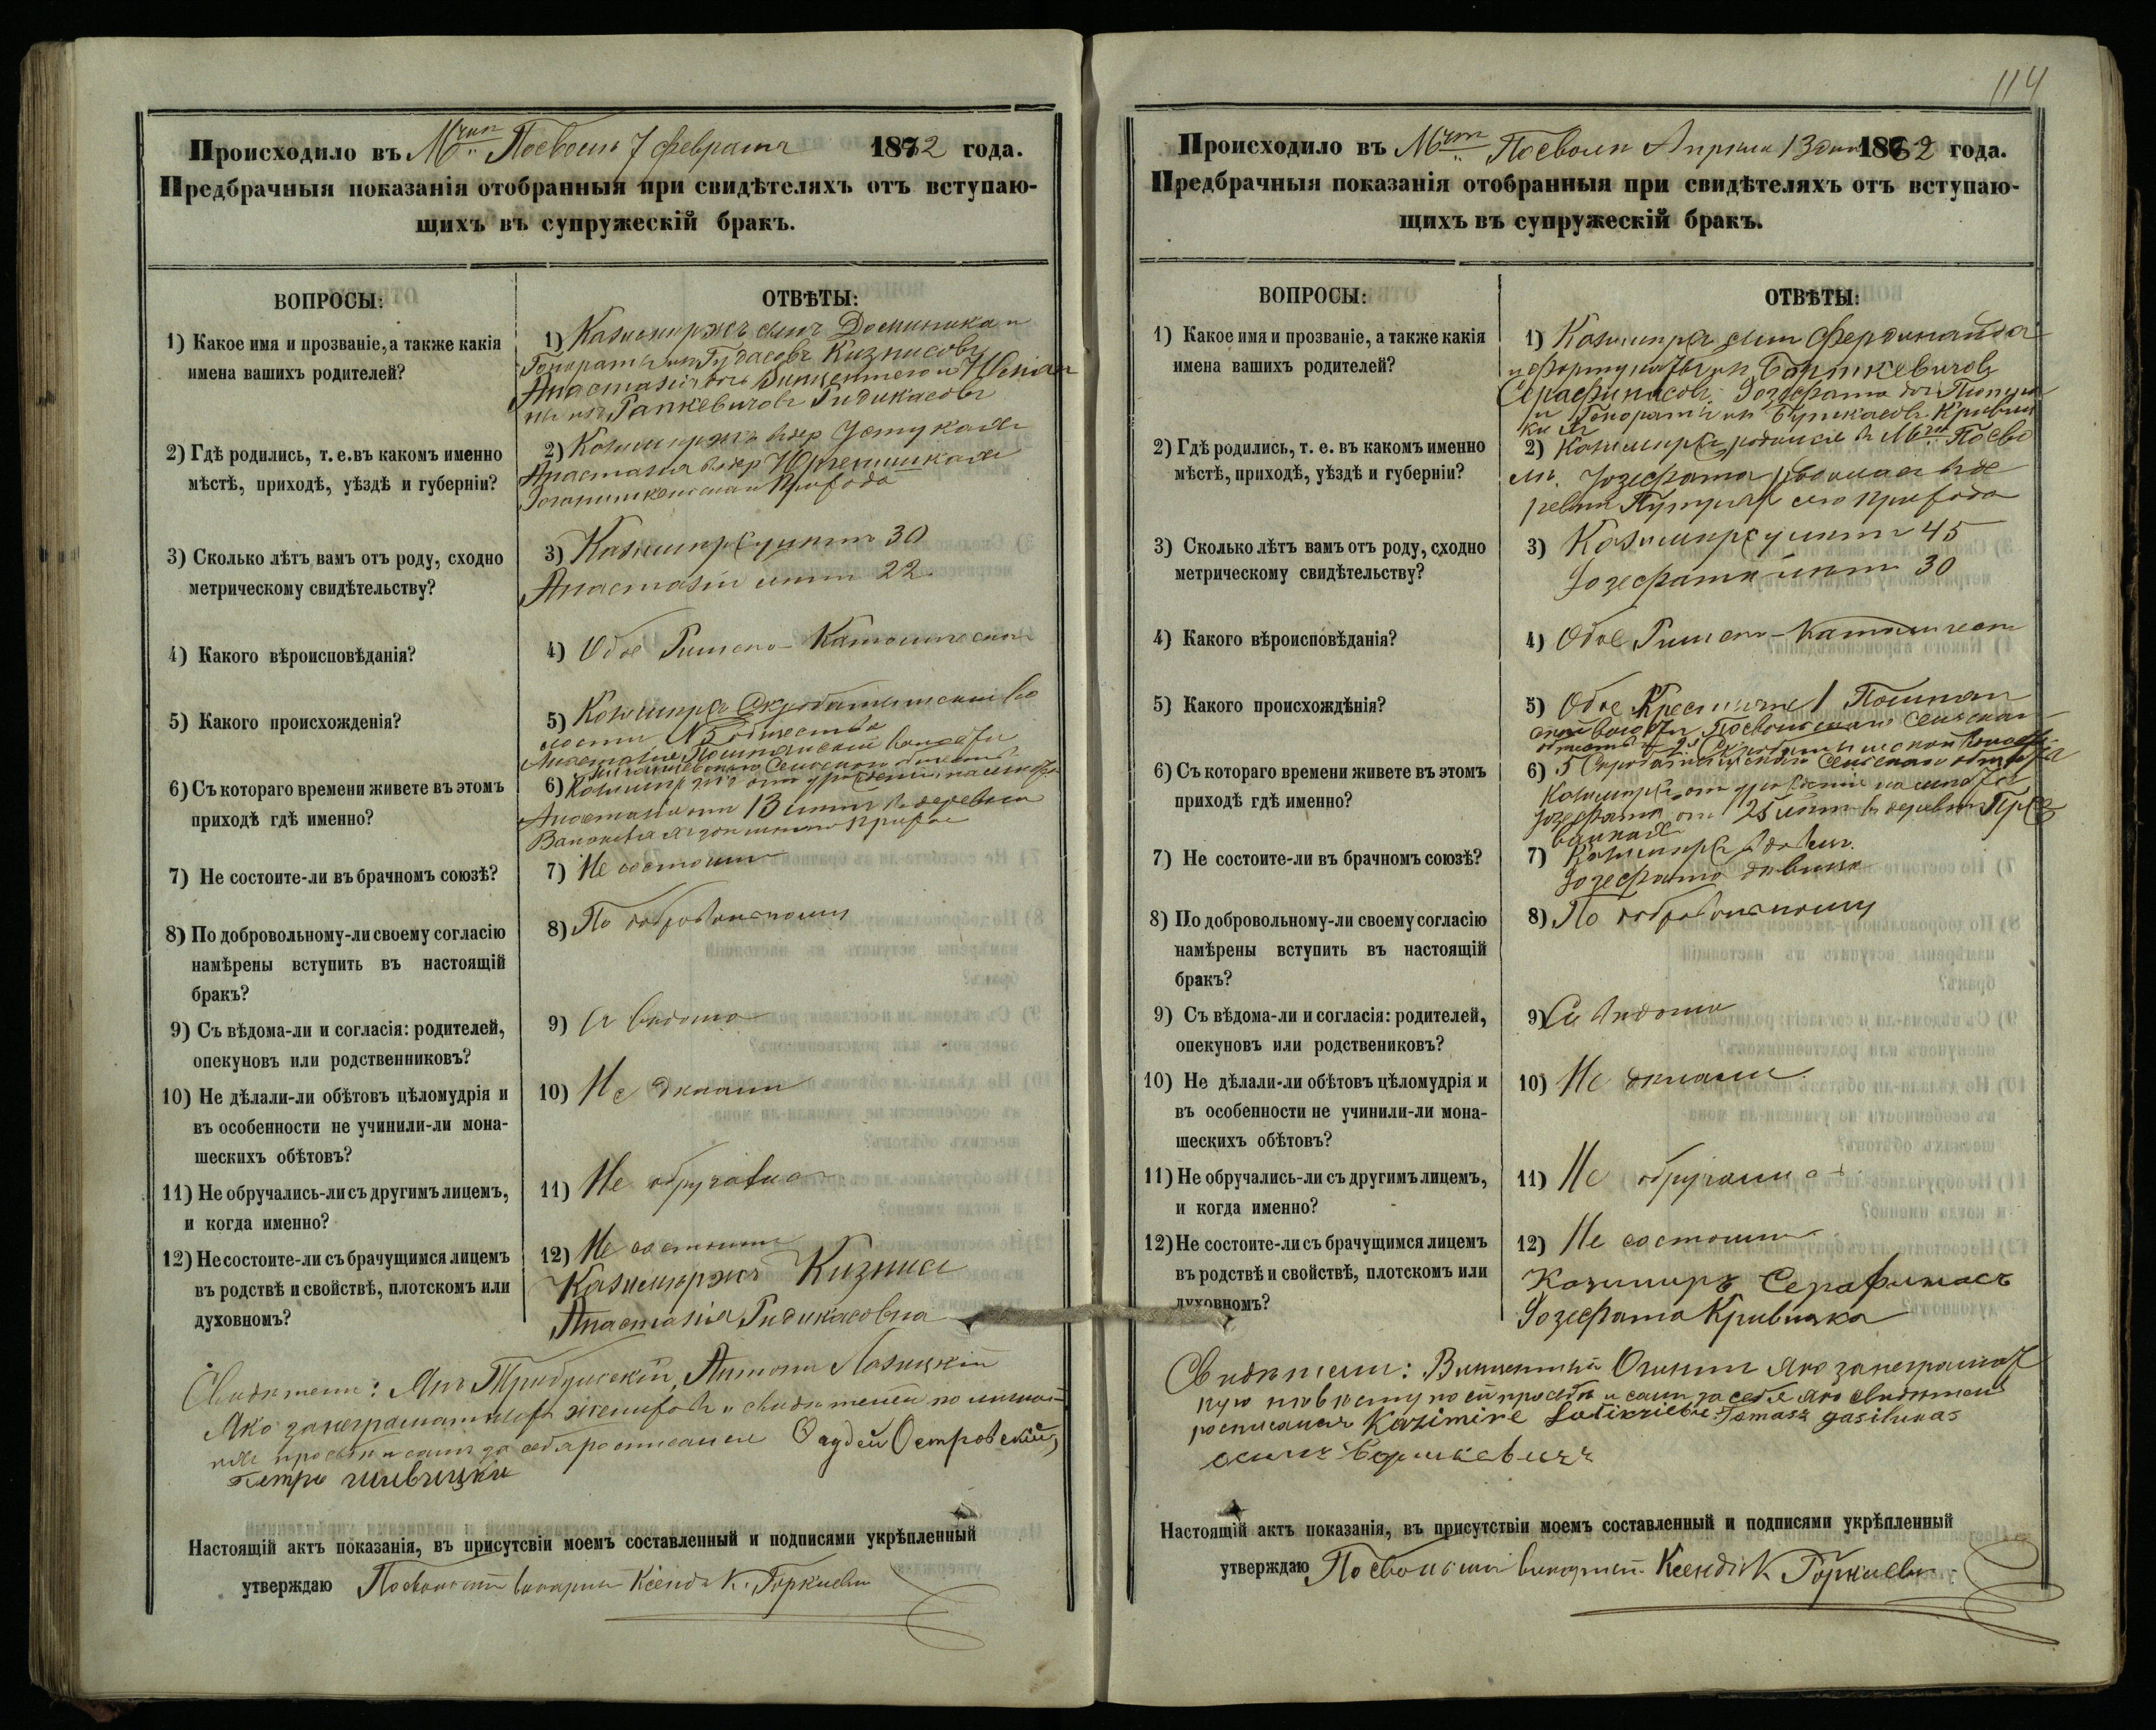 Происходило въ М. Посволь 7 февраля 1882 года.
Предбрачныя показанія отобранныя при свидѣтеляхъ отъ вступаю-
щихъ въ супружескій бракъ.
ВОПРОСЫ:
ОТВѢТЫ:
1) Какое имя и прозваніе, а также какія
имена вашихъ родителей?
1) Казимиржъ сынъ Доминика и
Гонораты изъ Гудасовъ Кизнисовъ
Анастазія дочь Винцентего и
изъ Рапкевичовъ Гидикасовъ
2) Гдѣ родились, т. е. въ какомъ именно
мѣстѣ, приходѣ, уѣздѣ и губерніи?
2) Казимиржъ въ дер Устукахъ
Анастазія въ дер
прихода
3) Сколько лѣтъ вамъ отъ роду, сходно
метрическому свидѣтельству?
3) Казимиру лѣтъ 30
Анастазіи лѣтъ 22
4) Какого вѣроисповѣданія?
4) Обое Римско-Католическаго
5) Какого происхожденія?
5) Казимиръ во
лости общества
Анастазія волости
6) Съ котораго времени живете въ этомъ
приходѣ гдѣ именно?
6) Казимиржъ отъ
Анастазія отъ 13 лѣтъ въ деревни
7) Не состоите-ли въ брачномъ союзѣ?
7) Не состоимъ
8) По добровольному-ли своему согласію
намѣрены вступить въ настоящій
бракъ?
8) По добровольному
9) Съ вѣдома-ли и согласія: родителей,
опекуновъ или родственниковъ?
9) Съ вѣдома
10) Не дѣлали-ли обѣтовъ цѣломудрія и
въ особенности не учинили-ли мона-
шескихъ обѣтовъ?
10) Не дѣлали
11) Не обручались-ли съ другимъ лицемъ,
и когда именно?
11) Не обручались
12) Не состоите-ли съ брачущимся лицемъ
въ родствѣ и свойствѣ, плотскомъ или
духовномъ?
12) Не состоимъ
Казимиржъ Кизнис
Анастазія Гидикасовна
Свидѣтели: Янъ Трибульскій, Антони Лазицкій
Яко за неграмотныхъ жениховъ и свидѣтелей по личной
ихъ просьбѣ и самъ за себя росписался Фадей Островскій,
Петръ
Настоящій актъ показанія, въ присутсвіи моемъ составленный и подписями укрѣпленный
утверждаю Посвольскій викарій Ксендзъ К.
114
Происходило въ М. Посволь Апрѣля 13 дня 1882 года.
Предбрачныя показанія отобранныя при свидѣтеляхъ отъ вступаю-
щихъ въ супружескій бракъ.
ВОПРОСЫ:
ОТВѢТЫ:
1) Какое имя и прозваніе, а также какія
имена вашихъ родителей?
1) Казимиръ сынъ Фердинанда
и Фортунаты изъ
Серафинасовъ. Іозефата дочь
и Гонораты изъ
2) Гдѣ родились, т. е. въ какомъ именно
мѣстѣ, приходѣ, уѣздѣ и губерніи?
2) Казимиръ родился въ М. Посво
лѣ. Іозефата родилась въ де
ревни сего прихода
3) Сколько лѣтъ вамъ отъ роду, сходно
метрическому свидѣтельству?
3) Казимиру лѣтъ 45
Іозефатѣ лѣтъ 30
4) Какого вѣроисповѣданія?
4) Обое Римско-Католическаго
5) Какого происхождѣнія?
5) Обое Крестьяне
волости Посвольскаго Сельскаго
6) Съ котораго времени живете въ этомъ
приходѣ гдѣ именно?
6)
Казимиръ отъ
Іозефата отъ 25 лѣтъ въ деревни
7) Не состоите-ли въ брачномъ союзѣ?
7) Казимиръ вдовецъ.
Іозефата дѣвица
8) По добровольному-ли своему согласію
намѣрены вступить въ настоящій
бракъ?
8) По добровольному
9) Съ вѣдома-ли и согласія: родителей,
опекуновъ или родствениковъ?
9) Съ вѣдома
10) Не дѣлали-ли обѣтовъ цѣломудрія и
въ особенности не учинили-ли мона-
шескихъ обѣтовъ?
10) Не дѣлали
11) Не обручались-ли съ другимъ лицемъ,
и когда именно?
11) Не обручались
12) Не состоите-ли съ брачущимся лицемъ
въ родствѣ и свойствѣ, плотскомъ или
духовномъ?
12) Не состоимъ
Казимиръ Серафинасъ
Іозефата Кривицка
Свидѣтели: Винцентый яко за неграмот
ную невѣсту по ей просьбѣ и самъ за себя яко свидѣтель
росписался Kazimire Tomasz gasilunas
осипъ
Настоящій актъ показанія, въ присутствіи моемъ составленный и подписями укрѣпленный
утверждаю Посвольскій викарій Ксендзъ К.